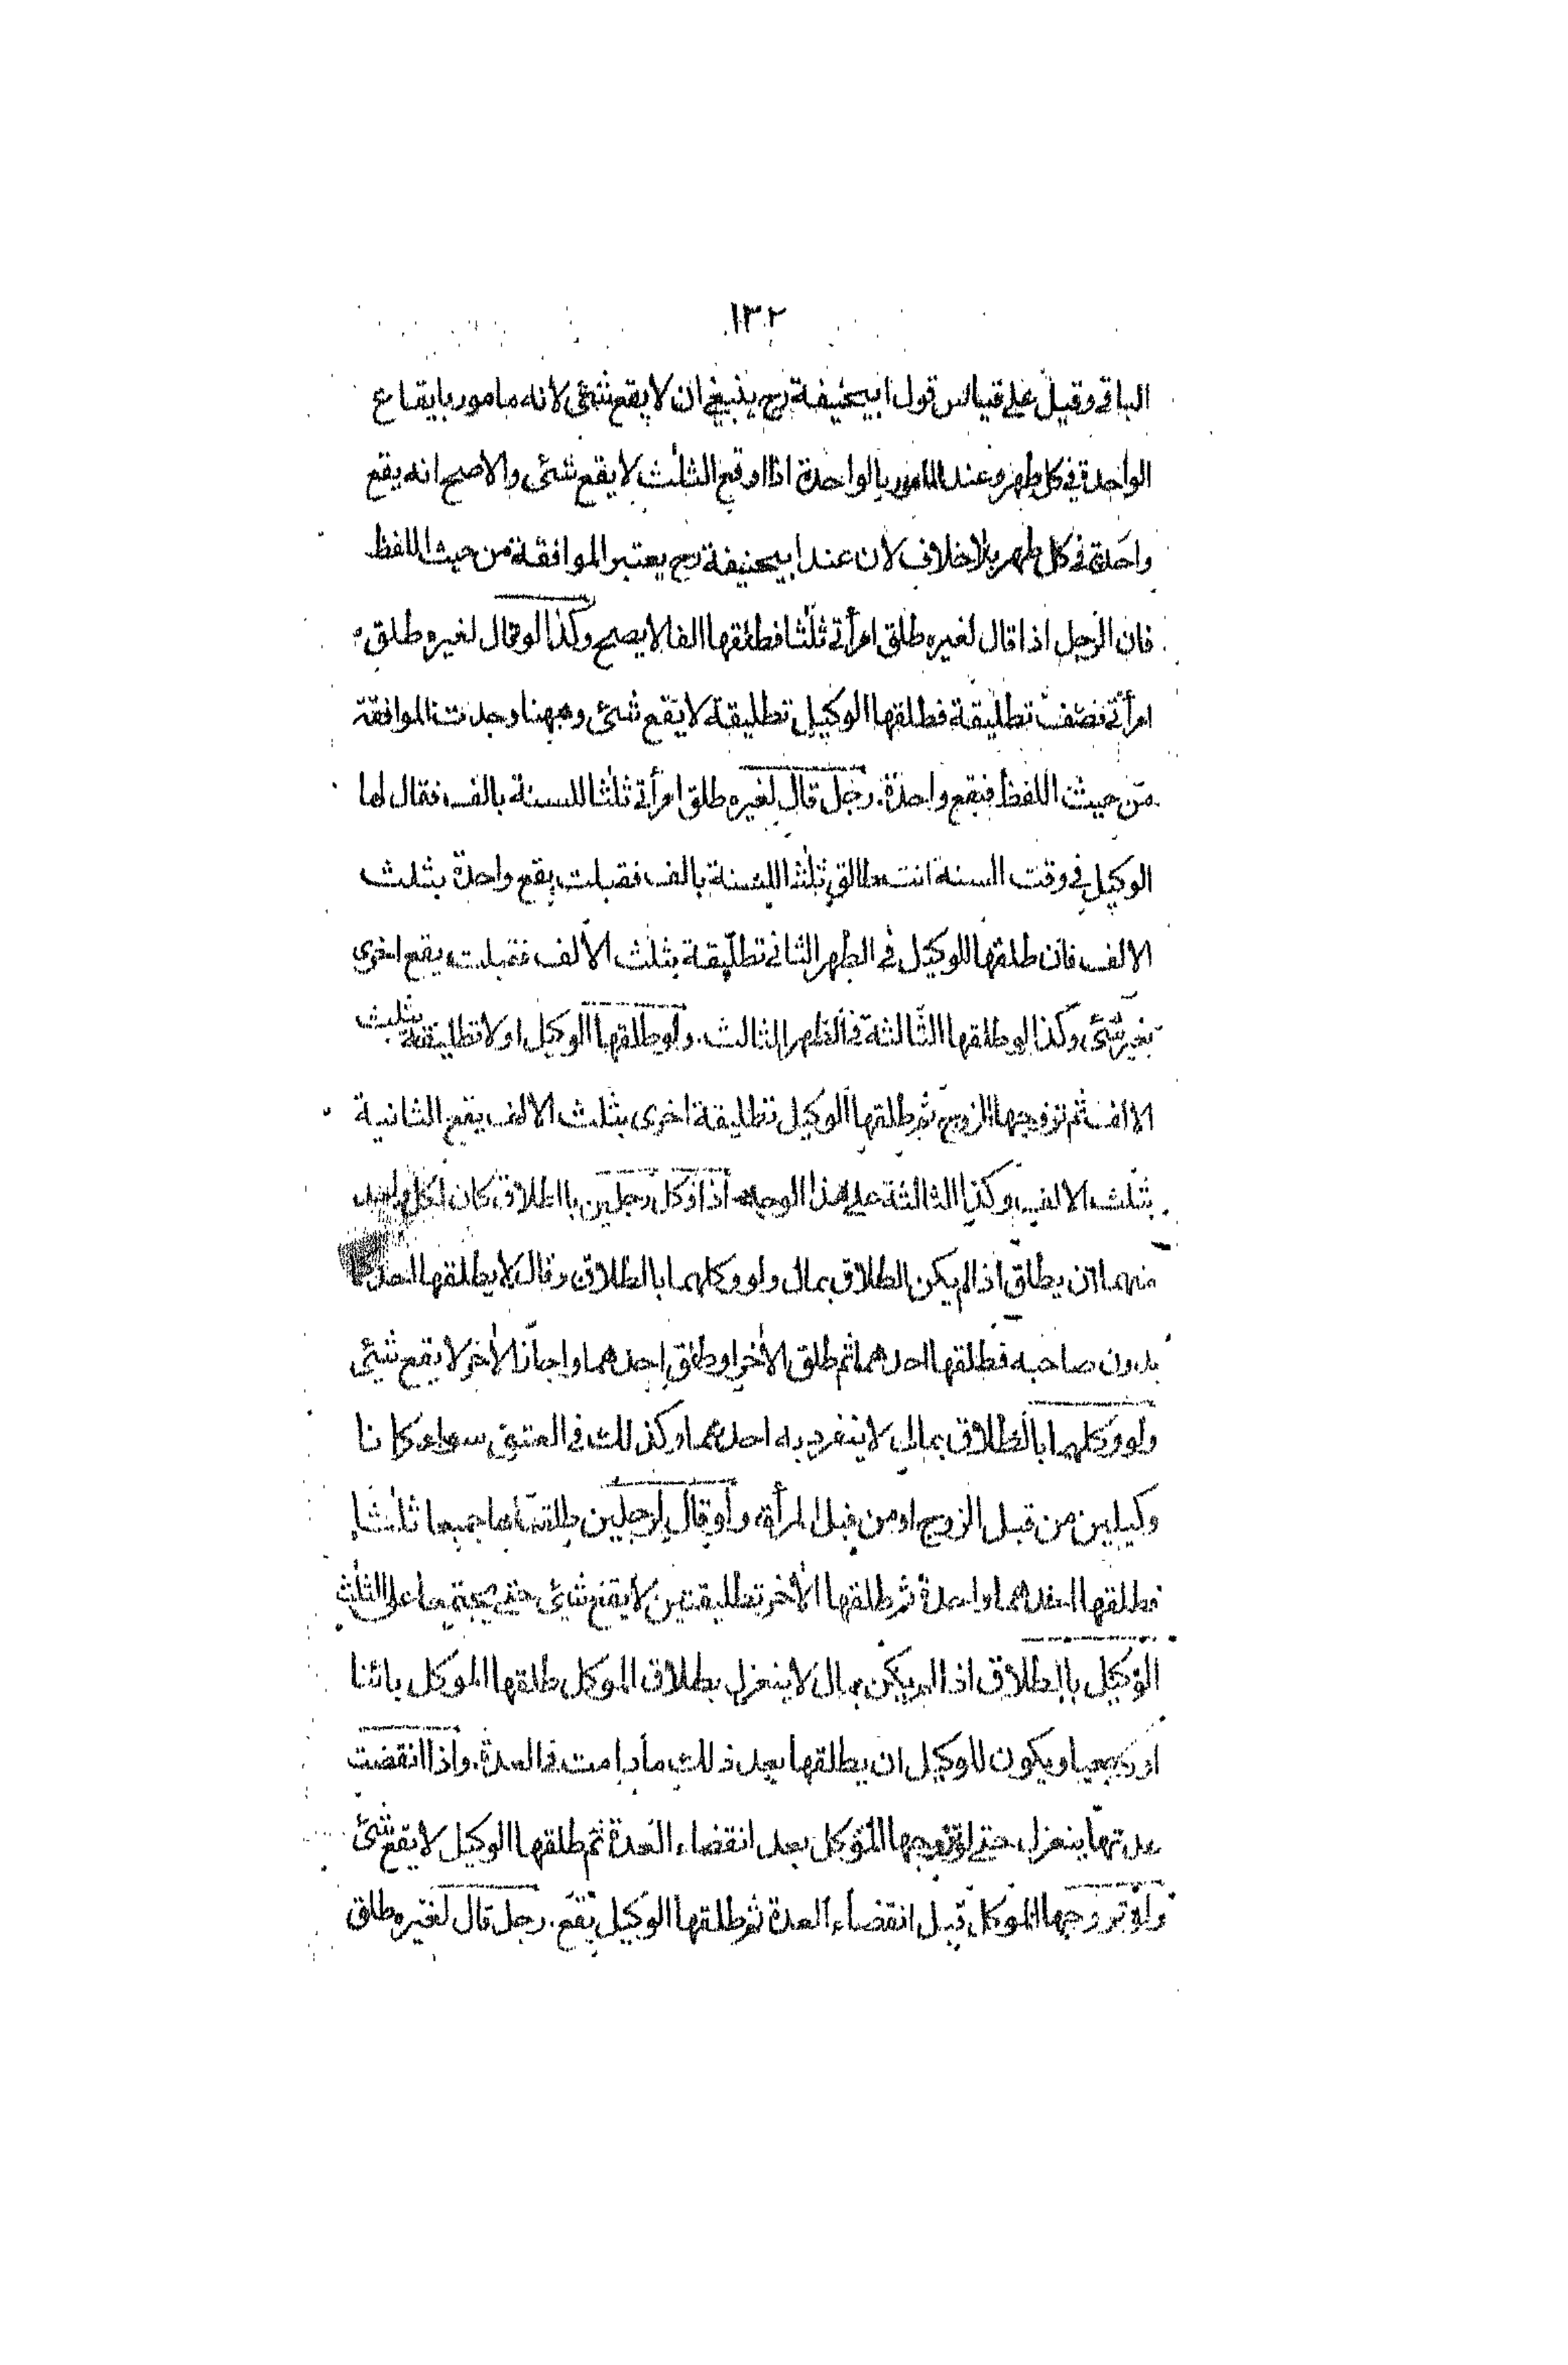 ١٣٢
الباقي وقيل على قياس قول ابيحنيفة رح ينبغي ان لا يقع شئ لانه مامور بايقاع
الواحدة في كل طهر وعند المامور بالواحدة اذا اوقع الثلث لا يقع شئ والاصح انه يقع
واحدة في كل طهر بلا خلاف لان عند ابيحنيفة رح يعتبر الموافقة من حيث اللفظ
فان الرجل اذا قال لغيره طلق امرأتي ثلثا فطلقها الفا لا يصح وكذا لو قال لغيره طلق
امرأتي نصف تطليقة فطلقها الوكيل تطليقة لا يقع شئ وههنا وجدت الموافقة
من حيث اللفظ فيقع واحدة. رجل قال لغيره طلق امرأتي ثلثا للسنة بالف فقال لها
الوكيل في وقت السنة انت طالق ثلثا للسنة بالف فقبلت يقع واحدة بثلث
الالف فان طلقها الوكيل في الطهر الثاني تطليقة بثلث الالف فقبلت يقع اخرى
بغير شئ وكذا لو طلقها الثالثة في الطهر الثالث. ولو طلقها الوكيل اولا تطليقة بثلث
الالف ثم تزوجها الزوج ثم طلقها الوكيل تطليقة اخرى بثلث الالف يقع الثانية
بثلث الالف وكذا الثالثة على هذا الوجه اذا وكل رجلين بالطلاق كان لكل واحد
منهما ان يطلق اذا لم يكن الطلاق بمال ولو وكلهما بالطلاق وقال لا يطلقها احدكما
بدون صاحبه فطلقها احدهما ثم طلق الاخر او طلق احدهما واجاز الاخر لا يقع شئ
ولو وكلهما بالطلاق بمال لا ينفرد به احدهما وكذلك في العتق سواء كانا
وكيلين من قبل الزوج او من قبل المرأة ولو قال لرجلين طلقاها جميعا ثلثا
فطلقها احدهما واحدة ثم طلقها الاخر تطليقتين لا يقع شئ حتى يجتمعا على الثلث
الوكيل بالطلاق اذا لم يكن بمال لا ينعزل بطلاق الموكل طلقها الموكل بائنا
او رجعيا ويكون للوكيل ان يطلقها بعد ذلك ما دامت في العدة. واذا انقضت
عدتها ينعزل حتى لو تزوجها الموكل بعد انقضاء العدة ثم طلقها الوكيل لا يقع شئ
ولو تزوجها الموكل قبل انقضاء العدة ثم طلقها الوكيل يقع. رجل قال لغيره طلق